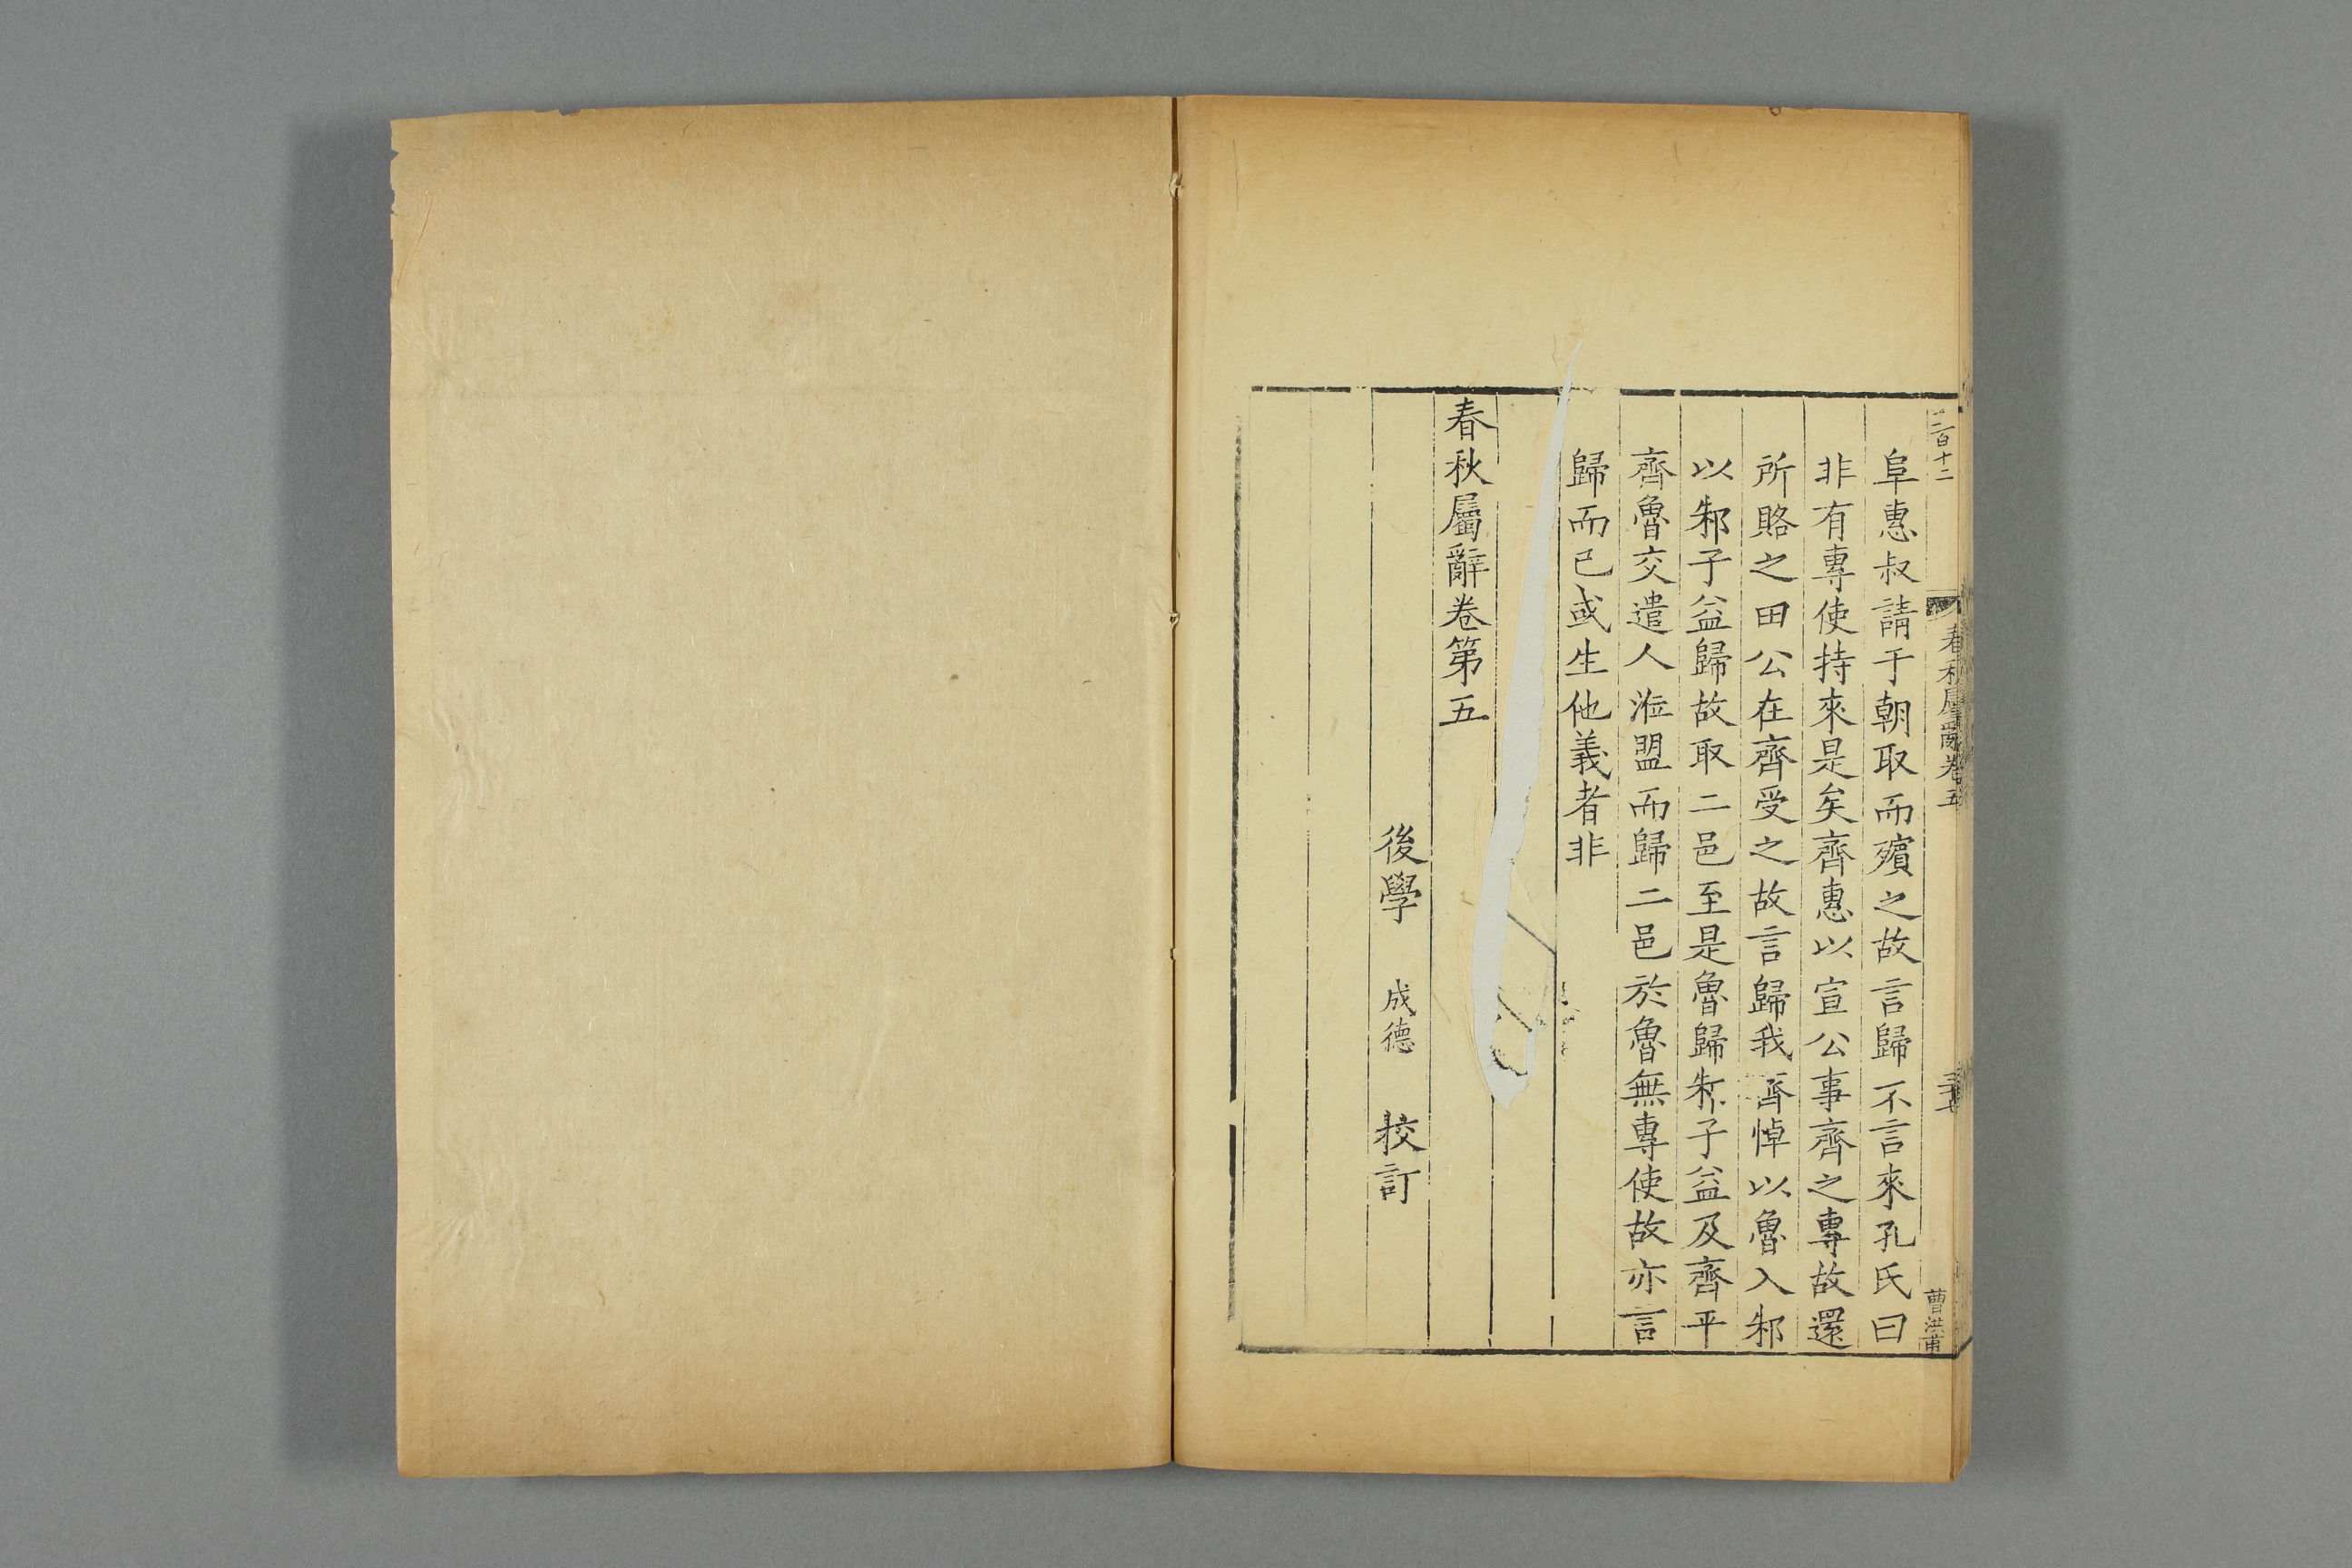 二百十二
春秋屬辭卷五
三十七
曹洪甫
阜惠叔請于朝取而殯之故言歸不言來孔氏曰
非有專使持來是矣齊惠以宣公事齊之專故還
所賂之田公在齊受之故言歸我齊悼以魯入邾
以邾子益歸故取二邑至是魯歸邾子益及齊平
齊魯交遣人涖盟而歸二邑於魯無專使故亦言
歸而已或生他義者非
春秋屬辭卷第五
後學 成德 校訂